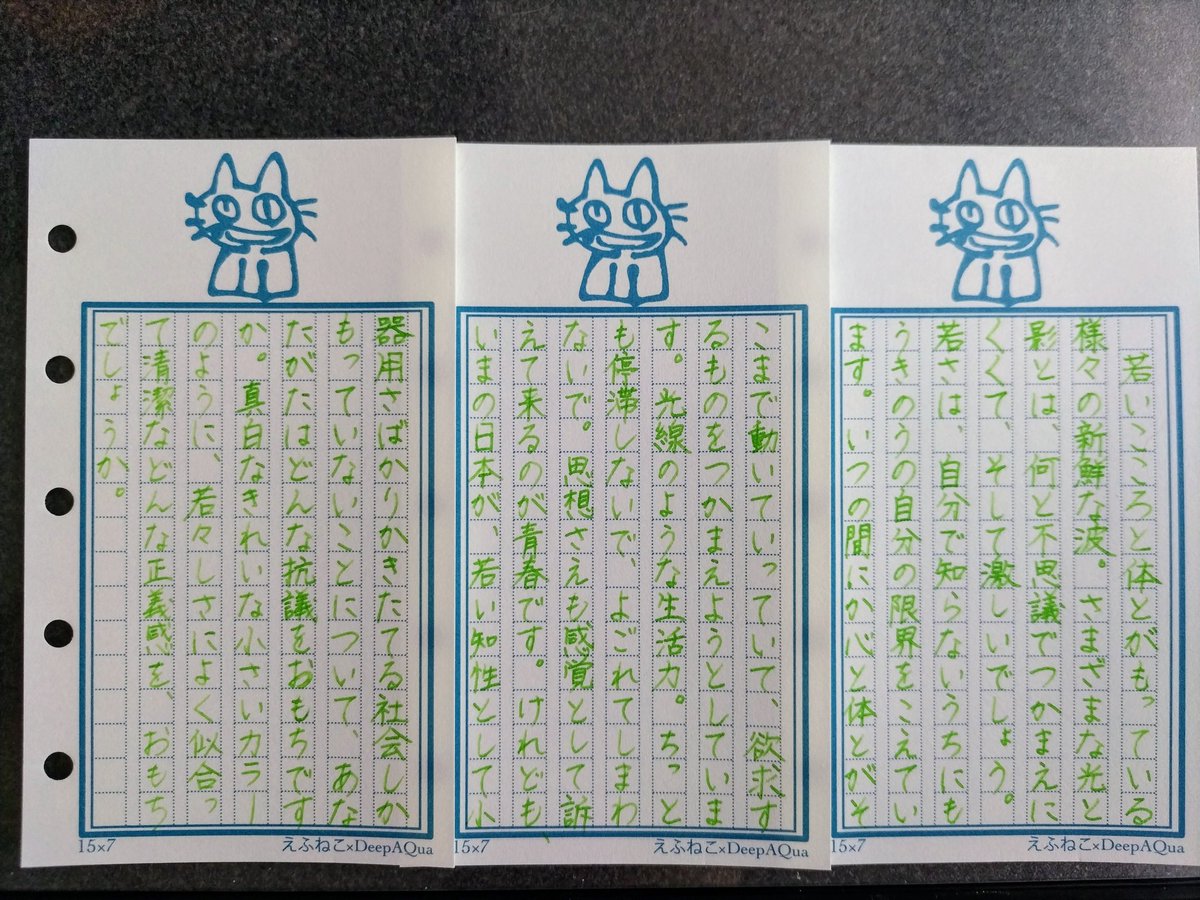 若いこころと体とがもっている
様々の新鮮な波。さまざまな光と
影とは、何と不思議でつかまえに
くくて、そして激しいでしょう。
若さは、自分で知らないうちにも
うきのうの自分の限界をこえてい
ます。いつの間にか心と体とがそ
15×7
えふねこ×DeepAQua
こまで動いていっていて、欲求す
るものをつかまえようとしていま
す。光線のような生活力。ちっと
も停滞しないで、よごれてしまわ
ないで。思想さえも感覚として訴
えて来るのが青春です。けれども、
いまの日本が、若い知性として小
15×7
えふねこ×DeepAQua
器用さばかりかきたてる社会しか
もっていないことについて、あな
たがたはどんな抗議をおもちです
か。真白なきれいな小さいカラー
のように、若々しさによく似合っ
て清潔などんな正義感を、おもち
でしょうか。
15×7
えふねこ×DeepAQua